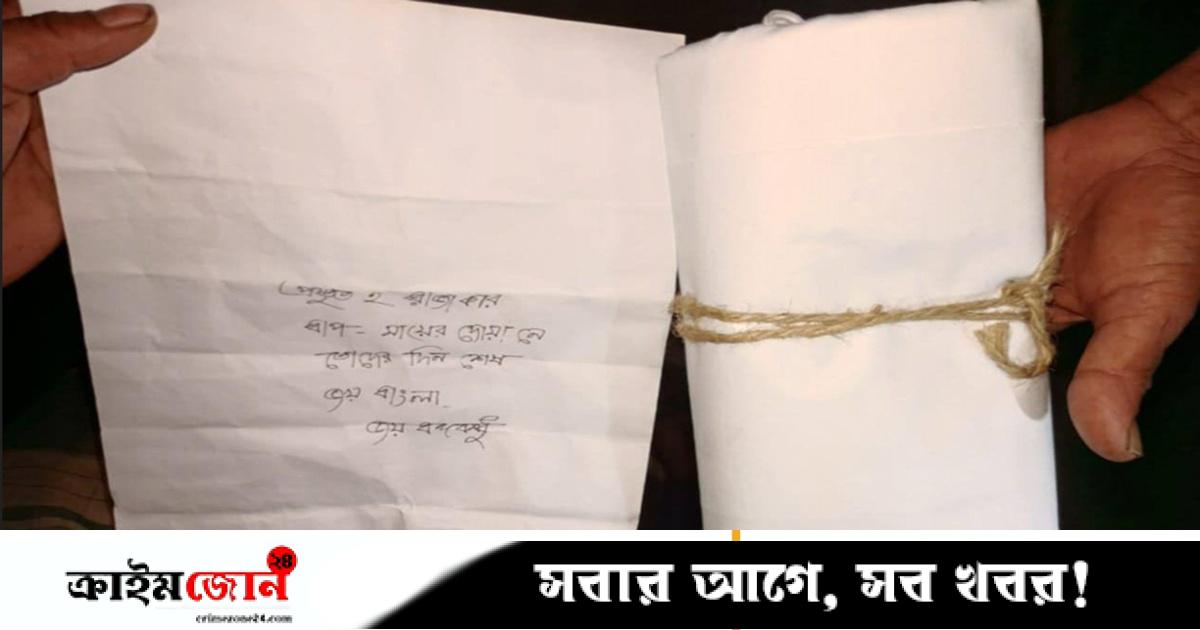 প্রস্তুত হ রাজাকার
বাপ- মায়ের দোয়া নে
তোদের দিন শেষ
জয় বাংলা
জয় বঙ্গবন্ধু
ক্রাইমজোন ২৪
crimezone24.com
সবার আগে, সব খবর!